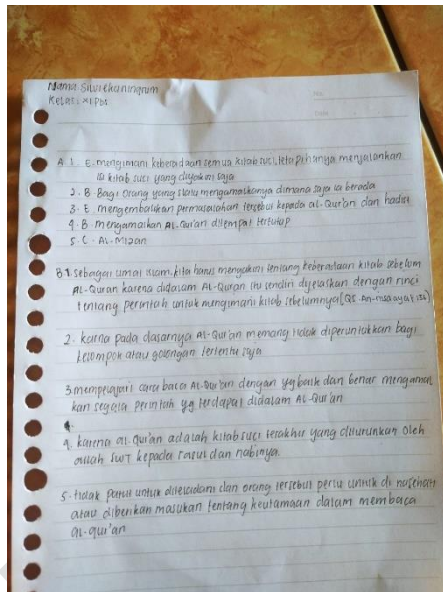 Nama: Silvi Ekaningrum
Kelas: XI PBS
No
Date
A. 1. E. mengimani keberadaan semua kitab suci, tetapi hanya menjalankan
isi kitab suci yang diyakini saja
2. B. Bagi orang yang selalu mengamalkannya dimana saja ia berada
3. E. mengembalikan permasalahan tersebut kepada al-Qur'an dan hadis
4. B. mengamalkan AL-Qur'an ditempat tertutup
5. C. AL-Mizan
B.1. sebagai umat islam, kita harus mengakui tentang keberadaan kitab sebelum
AL-Quran karena didalam AL-Quran itu sendiri dijelaskan dengan rinci
tentang perintah untuk mengimani kitab sebelumnya (QS. An-nisa ayat 136)
2. karna pada dasarnya AL-Qur'an memang tidak diperuntukkan bagi
kelompok atau golongan tertentu saja
3. mempelajari cara baca AL-Qur'an dengan yg baik dan benar mengamal
kan segala perintah yg terdapat didalam AL-Qur'an
4. karena al-Qur'an adalah kitab suci terakhir yang diturunkan oleh
allah SWT kepada rasul dan nabinya.
5. tidak patut untuk diteladani dan orang tersebut perlu untuk di nasehati
atau diberikan masukan tentang keutamaan dalam membaca
al-qur'an